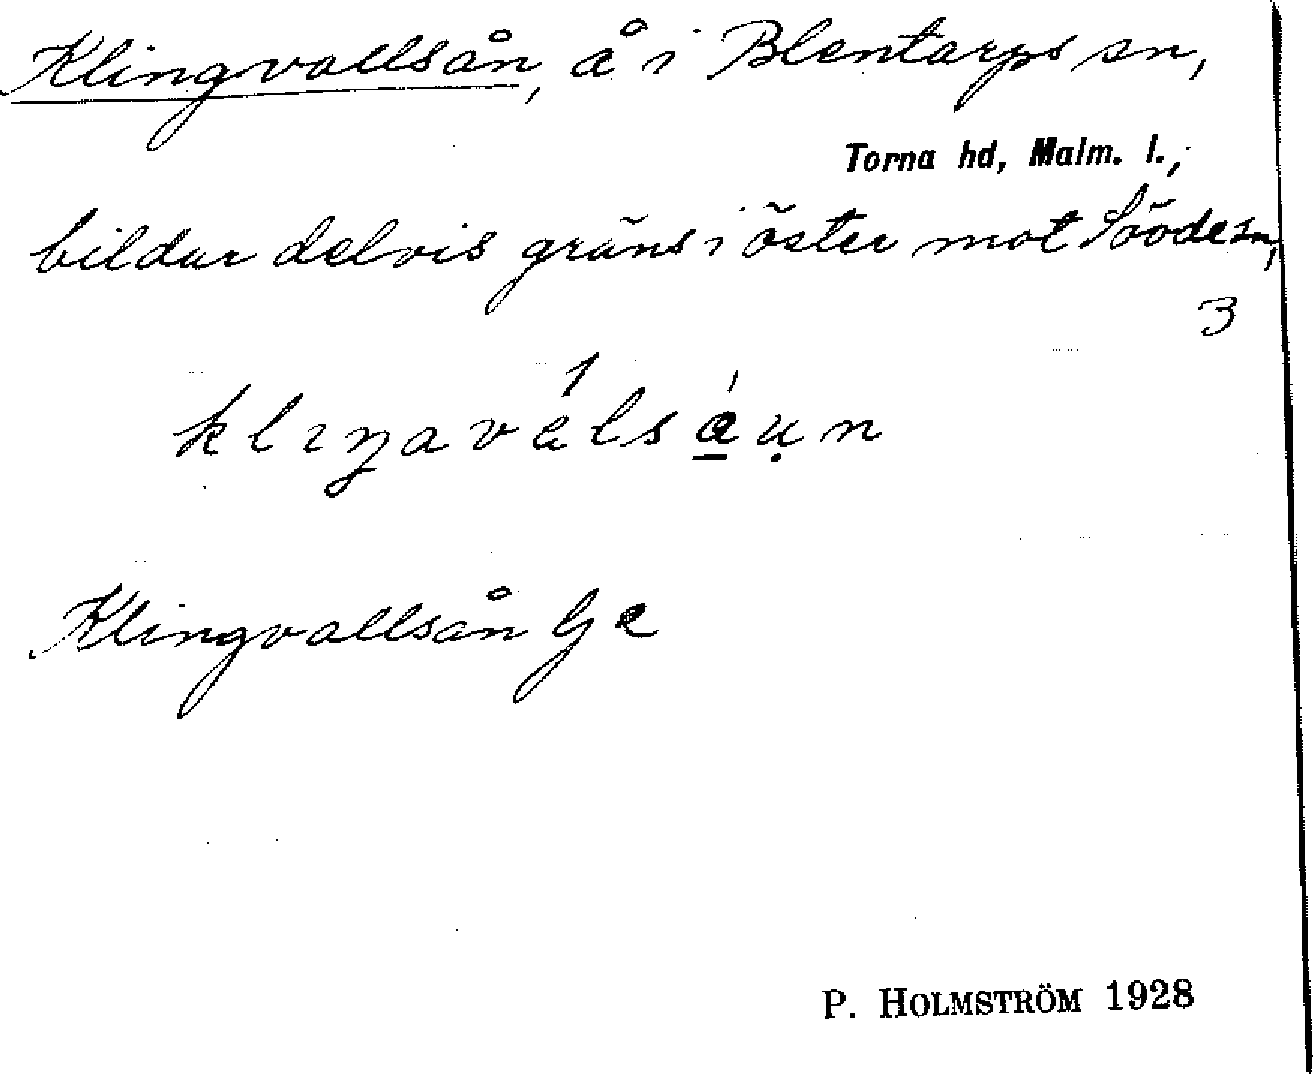 Klingvallsån, å i Blentarps sn,
Torna hd, Malm. l.,
bildar delvis gräns i öster mot Sövde sn,
3
klıŋavalsáu̩n
Klingvallsån Ge
P. HOLMSTRÖM 1928